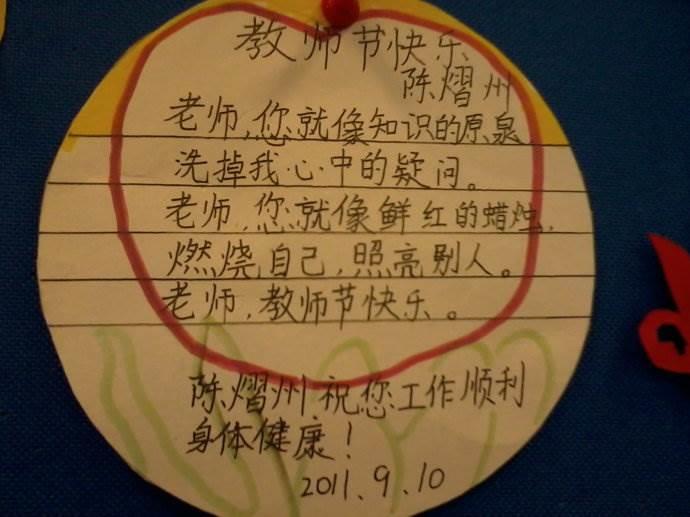 教师节快乐
陈熠州
老师,您就像知识的原泉
洗掉我心中的疑问。
老师,您就像鲜红的蜡烛,
燃烧自己,照亮别人。
老师,教师节快乐。
陈熠州祝您工作顺利
身体健康!
2011.9.10